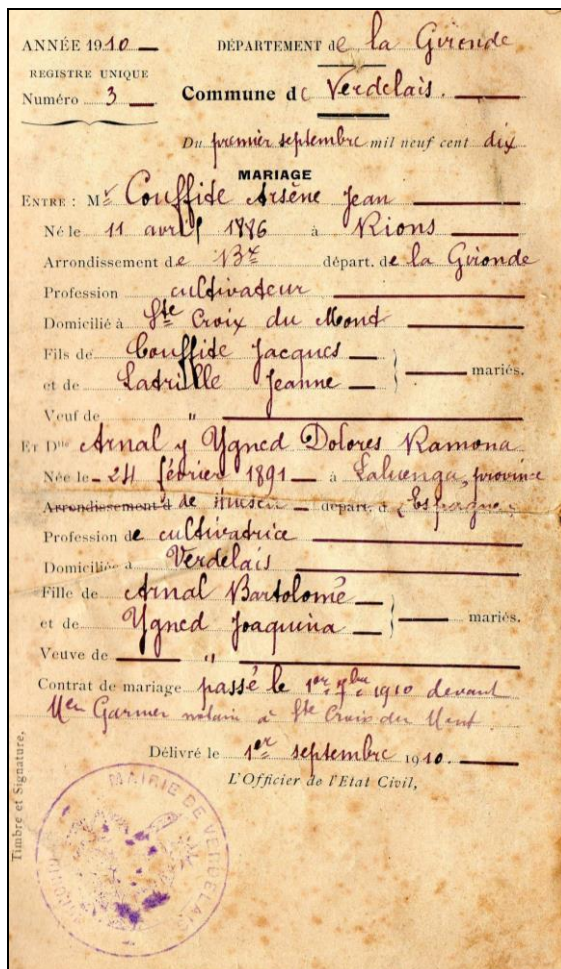 ANNÉE 1910 DÉPARTEMENT de la Gironde
REGISTRE UNIQUE
Numéro 3 Commune de Verdelais.
Du premier septembre mil neuf cent dix
MARIAGE
ENTRE : Mr Couffite Arsène Jean
Né le 11 avril 1886 à Rions
Arrondissement de Bx départ. de la Gironde
Profession cultivateur
Domicilié à Ste Croix du Mont
Fils de Couffite Jacques
et de Latrille Jeanne mariés.
Veuf de "
ET Dlle Arnal y Ygned Dolores Ramona
Née le 24 février 1891 à Laluenga, province
Arrondissement d de Huesca départ. d (Espagne)
Profession de cultivatrice
Domiciliée à Verdelais
Fille de Arnal Bartolomé
et de Ygned Joaquina mariés.
Veuve de "
Contrat de mariage passé le 1er 7bre 1910 devant
Me Garmer notaire à Ste Croix du Mont
Délivré le 1er septembre 1910.
L'Officier de l'Etat Civil,
Timbre et Signature,
MAIRIE DE VERDELAIS